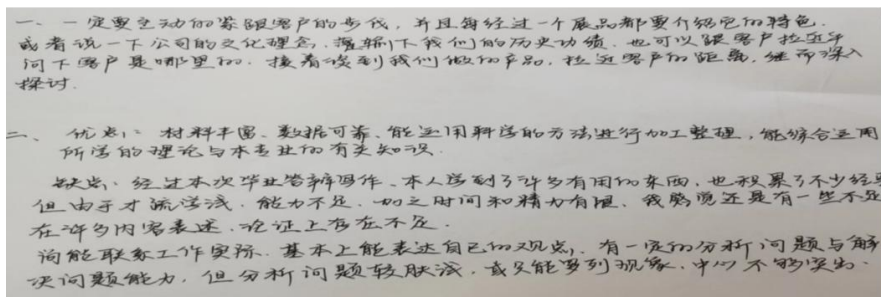 一、一定要主动的紧跟客户的步伐，并且每经过一个展品都要介绍它的特色.
或者说一下公司的文化理念，灌输下我们的历史功绩.也可以跟客户拉近乎
问下客户是哪里的.接着谈到我们做的产品，拉近客户的距离，继而深入
探讨.
二、优点：材料丰富、数据可靠、能运用科学的方法进行加工整理，能综合运用
所学的理论与本专业的有关知识.
缺点：经过本次毕业答辩写作、本人学到了许多有用的东西，也积累了不少经
但由于才疏学浅.能力不足.加之时间和精力有限、我感觉还是有一些不足
在许多内容表述.论证上存在不足.
尚能联系工作实际.基本上能表达自己的观点，有一定的分析问题与解
决问题能力，但分析问题较肤浅，或只能罗列现象.中心不够突出.